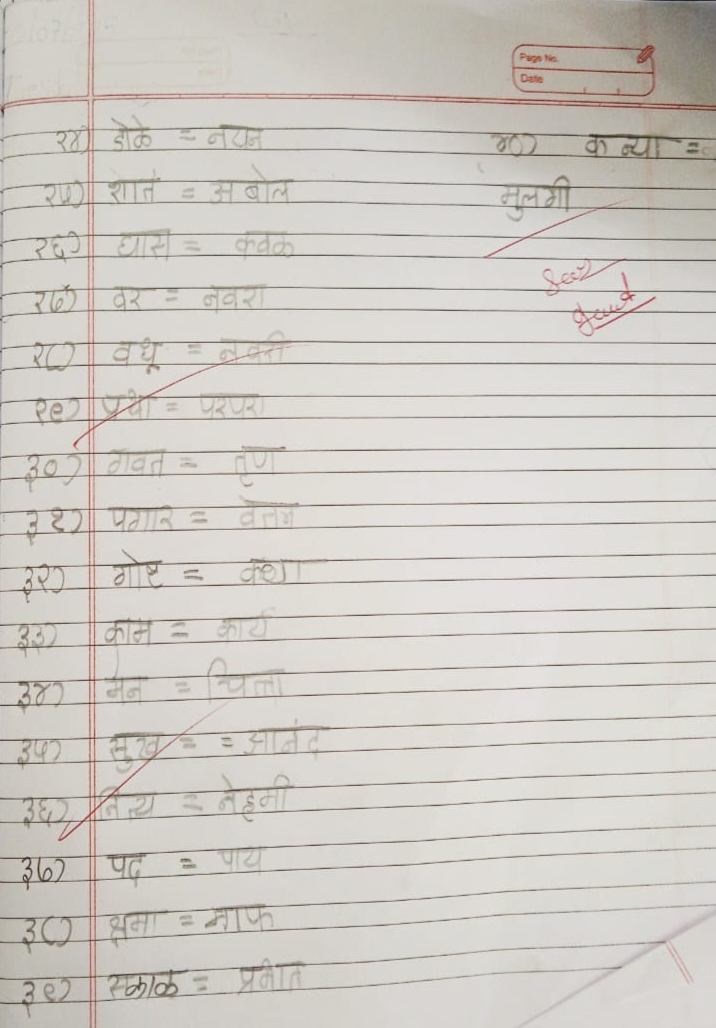 Page No.
Date
२४) डोळे = नयन
२५) शांत = अबोल
२६) घास = कवळ
२७) वर = नवरा
२८) वधू = नवरी
२९) प्रथा = परंपरा
३०) गवत = तृण
३१) पगार = वेतन
३२) गोष्ट = कथा
३३) काम = कार्य
३४) मन = चित्ता
३५) सुख = = आनंद
३६) नित्य = नेहमी
३७) पद = पाय
३८) क्षमा = माफ
३९) सकाळ = प्रभात
४०) कन्या =
मुलगी